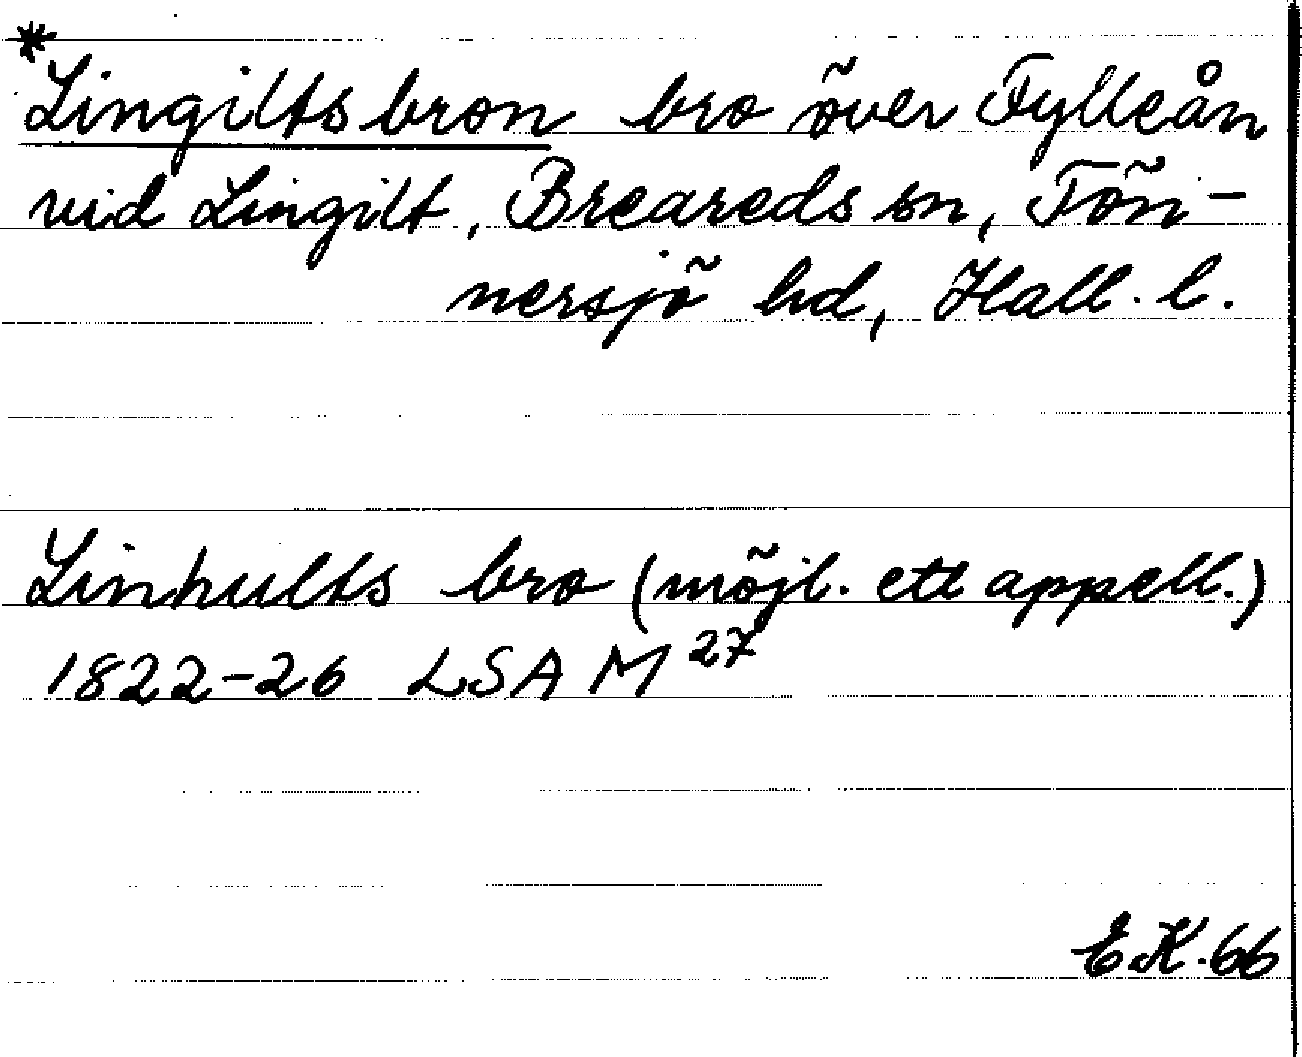 *
Lingiltsbron bro över Fylleån
vid Lingilt, Breareds sn, Tön-
nersjö hd, Hall. l.
Linhults bro (möjl. ett appell.)
1822-26 LSA M 27
E.K. 66